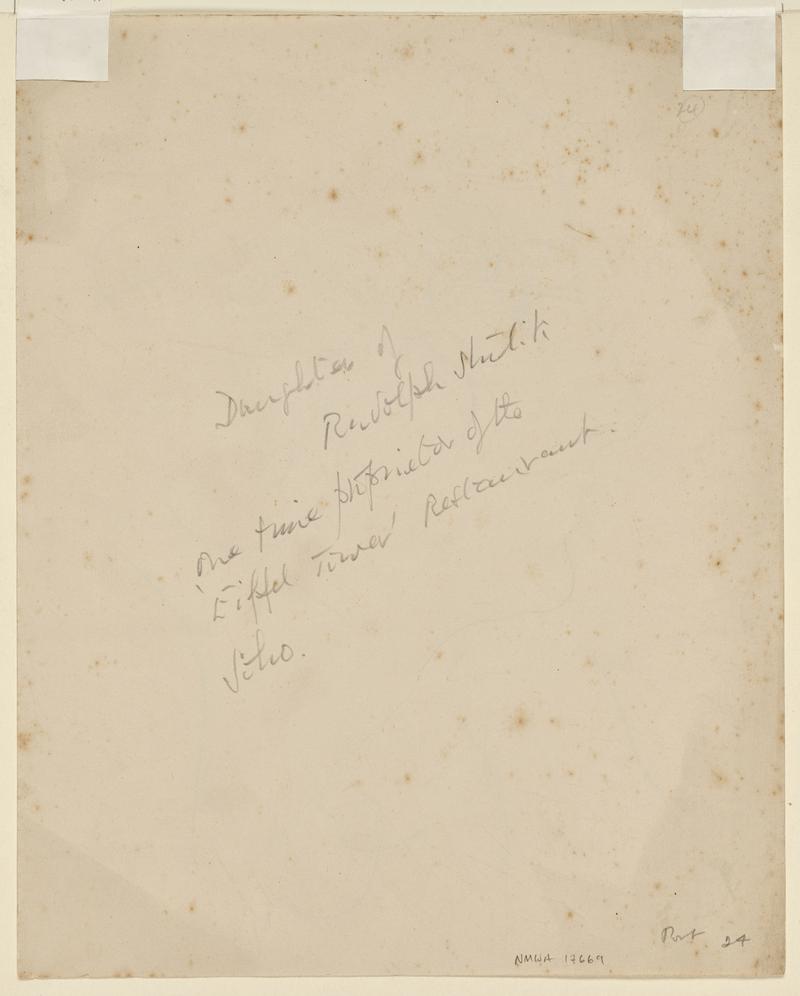 24
Daughter of
Rudolph Stulik
one time proprietor of the
'Eiffel Tower' Restaurant.
Soho.
Port 24
NMWA 17669